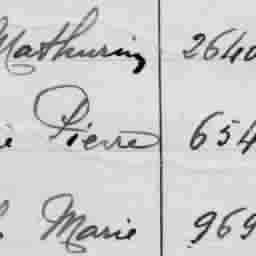 Mathurin 2640
ie Pierre 654
Marie 969